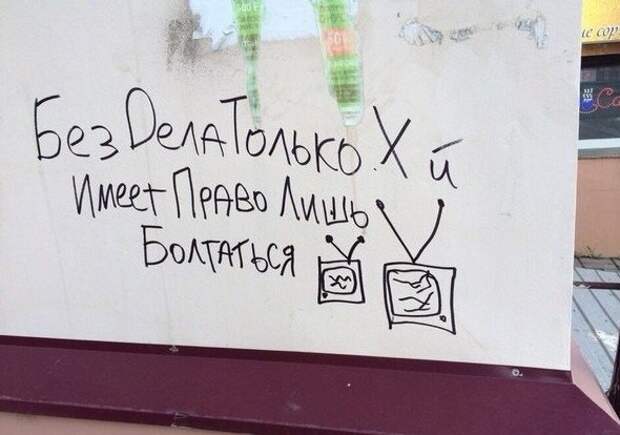 Без Dела Только Х й
Имеет Право Лишь
Болтаться